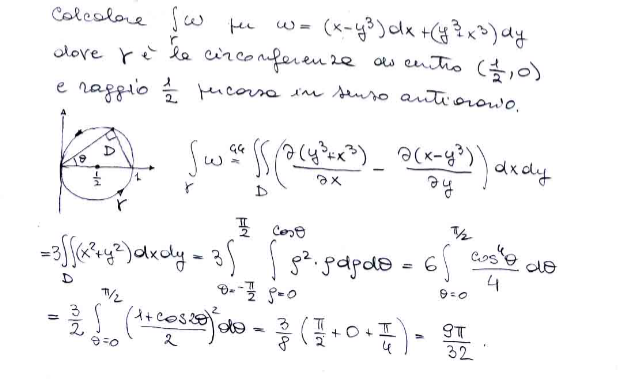 Calcolare ∫_γ ω per ω = (x-y³)dx + (y³+x³)dy
dove γ è la circonferenza di centro (1/2, 0)
e raggio 1/2 percorsa in senso antiorario.
D θ 1/2 1 γ
∫_γ ω =^{GG} ∬_D (∂(y³+x³)/∂x - ∂(x-y³)/∂y) dxdy
= 3∬_D (x²+y²)dxdy = 3∫_{θ=-π/2}^{π/2} ∫_{ρ=0}^{cosθ} ρ²·ρdρdθ = 6∫_{θ=0}^{π/2} cos⁴θ/4 dθ
= 3/2 ∫_{θ=0}^{π/2} ((1+cos2θ)/2)² dθ = 3/8 (π/2 + 0 + π/4) = 9π/32.